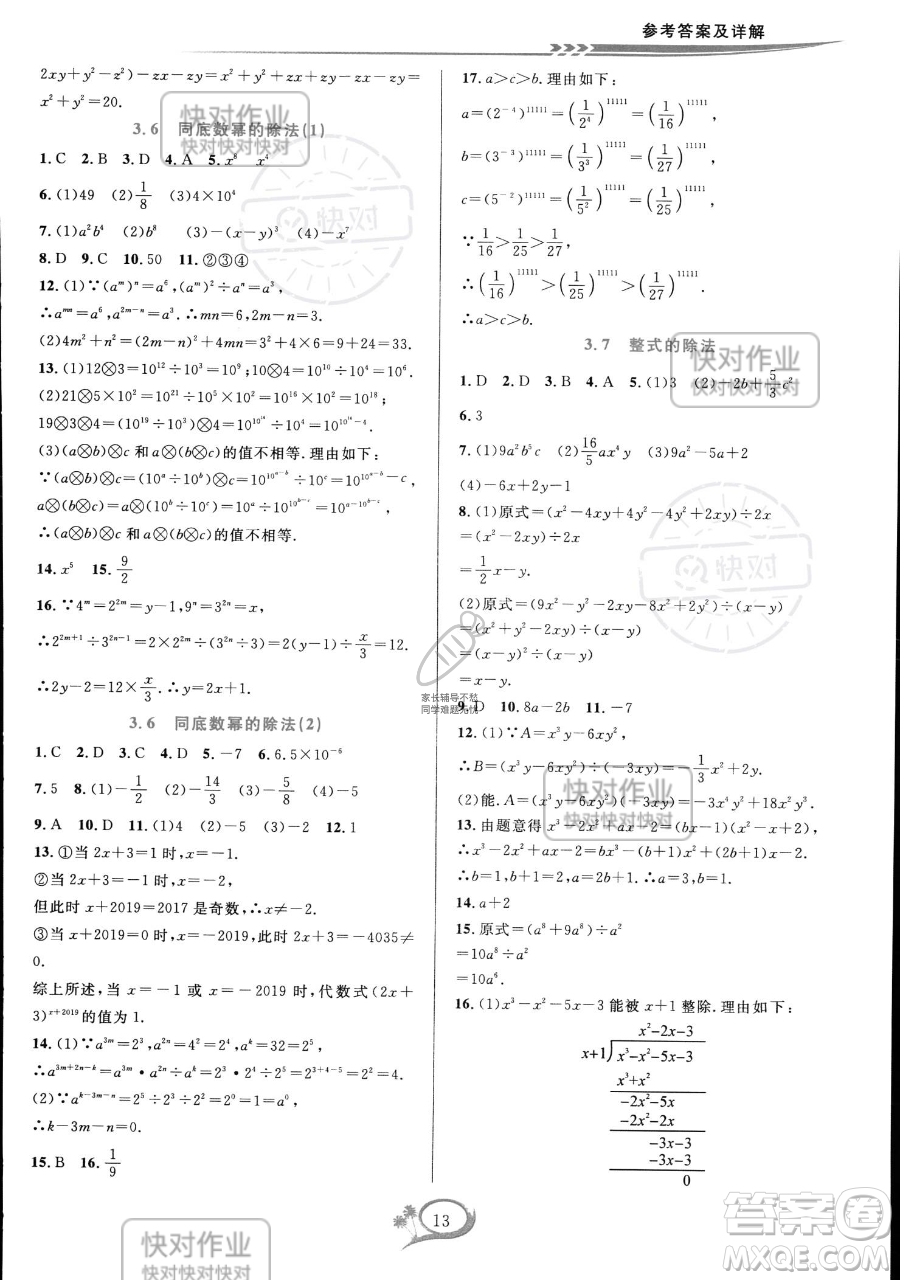 参考答案及详解
2xy+y²-z²)-zx-zy=x²+y²+zx+zy-zx-zy=
x²+y²=20.
3.6 同底数幂的除法(1)
1.C 2.B 3.D 4.A 5.x⁸ x⁴
6.(1)49 (2)1/8 (3)4×10⁴
7.(1)a²b⁴ (2)b⁸ (3)-(x-y)³ (4)-x⁷
8.D 9.C 10.50 11.②③④
12.(1)∵(aᵐ)ⁿ=a⁶,(aᵐ)²÷aⁿ=a³,
∴aᵐⁿ=a⁶,a²ᵐ⁻ⁿ=a³.∴mn=6,2m-n=3.
(2)4m²+n²=(2m-n)²+4mn=3²+4×6=9+24=33.
13.(1)12⊗3=10¹²÷10³=10⁹,10⊗4=10¹⁰÷10⁴=10⁶.
(2)21⊗5×10²=10²¹÷10⁵×10²=10¹⁶×10²=10¹⁸;
19⊗3⊗4=(10¹⁹÷10³)⊗4=10¹⁶⊗4=10^(10¹⁶)÷10⁴=10^(10¹⁶-4).
(3)(a⊗b)⊗c和a⊗(b⊗c)的值不相等.理由如下:
∵(a⊗b)⊗c=(10ᵃ÷10ᵇ)⊗c=10^(10^(a-b))÷10ᶜ=10^(10^(a-b)-c),
a⊗(b⊗c)=a⊗(10ᵇ÷10ᶜ)=10ᵃ÷10^(10^(b-c))=10^(a-10^(b-c)),
∴(a⊗b)⊗c和a⊗(b⊗c)的值不相等.
14.x⁵ 15.9/2
16.∵4ᵐ=2²ᵐ=y-1,9ⁿ=3²ⁿ=x,
∴2²ᵐ⁺¹÷3²ⁿ⁻¹=(2×2²ᵐ)÷(3²ⁿ÷3)=2(y-1)÷x/3=12.
∴2y-2=12×x/3.∴y=2x+1.
3.6 同底数幂的除法(2)
1.C 2.D 3.C 4.D 5.-7 6.6.5×10⁻⁶
7.5 8.(1)-1/2 (2)-14/3 (3)-5/8 (4)-5
9.A 10.D 11.(1)4 (2)-5 (3)-8 12.1
13.①当2x+3=1时,x=-1.
②当2x+3=-1时,x=-2,
但此时x+2019=2017是奇数,∴x≠-2.
③当x+2019=0时,x=-2019,此时2x+3=-4035≠
0.
综上所述,当x=-1或x=-2019时,代数式(2x+
3)ˣ⁺²⁰¹⁹的值为1.
14.(1)∵a³ᵐ=2³,a²ⁿ=2⁴,aᵏ=2⁵,
∴a³ᵐ⁺²ⁿ⁻ᵏ=a³ᵐ•a²ⁿ÷aᵏ=2³•2⁴÷2⁵=2³⁺⁴⁻⁵=4.
(2)∵aᵏ⁻³ᵐ⁻ⁿ=2⁵÷2³÷2²=2⁰=1=a⁰,
∴k-3m-n=0.
15.B 16.1/9
17.a>c>b.理由如下:
a=(2⁻⁴)¹¹¹¹¹=(1/2⁴)¹¹¹¹¹=(1/16)¹¹¹¹¹,
b=(3⁻³)¹¹¹¹¹=(1/3³)¹¹¹¹¹=(1/27)¹¹¹¹¹,
c=(5⁻²)¹¹¹¹¹=(1/5²)¹¹¹¹¹=(1/25)¹¹¹¹¹,
∵1/16>1/25>1/27,
∴(1/16)¹¹¹¹¹>(1/25)¹¹¹¹¹>(1/27)¹¹¹¹¹,
∴a>c>b.
3.7 整式的除法
1.D 2.D 3.B 4.A 5.(1)3 (2)-2b+5/3c²
6.3
7.(1)9a²b⁵c (2)16/5ax⁴y (3)9a²-5a-2
(4)-6x+2y-1
8.(1)原式=(x²-4xy+4y²-4y²+2xy)÷2x
=(x²-2xy)÷2x
=1/2x-y.
(2)原式=(9x²-y²-2xy-8x²+2y²)÷(x-y)
=(x²+y²-2xy)÷(x-y)
=(x-y)²÷(x-y)
=x-y.
9.D 10.8a-2b 11.-7
12.(1)∵A=x³y-6xy²,
∴B=(x³y-6xy²)÷(-3xy)=-1/3x²+2y.
(2)能.A=(x³y-6xy²)(-3xy)=-3x⁴y²+18x²y³.
13.由题意得x³-2x²+ax-2=(bx-1)(x²-x+2),
∴x³-2x²+ax-2=bx³-(b+1)x²+(2b+1)x-2.
∴b=1,b+1=2,a=2b+1.∴a=3,b=1.
14.a+2
15.原式=(a⁸+9a⁸)÷a²
=10a⁸÷a²
=10a⁶.
16.(1)x³-x²-5x-3能被x+1整除.理由如下:
x²-2x-3
x+1)x³-x²-5x-3
x³+x²
-2x²-5x
-2x²-2x
-3x-3
-3x-3
0
13
快对作业
快对快对快对
快对
家长辅导不愁
同学难题无忧
答案卷
MXQE.COM